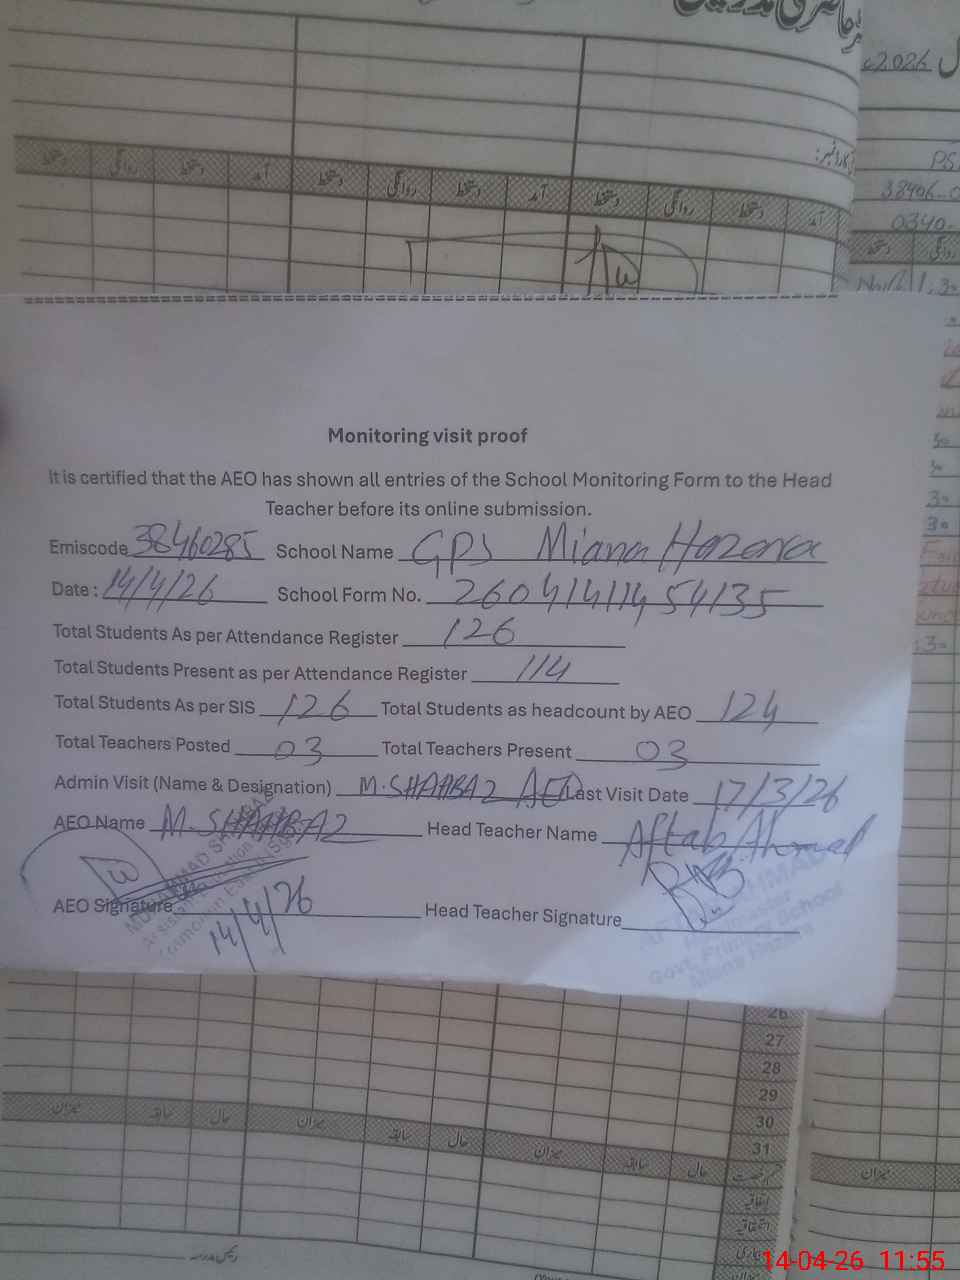 2026
دستخط روانگی دستخط آمد دستخط روانگی دستخط آمد دستخط روانگی دستخط آمد
38406-0
0340
Monitoring visit proof
It is certified that the AEO has shown all entries of the School Monitoring Form to the Head
Teacher before its online submission.
Emiscode 38460285 School Name GPS Miana Hazara
Date : 14/4/26 School Form No. 26041411454135
Total Students As per Attendance Register 126
Total Students Present as per Attendance Register 114
Total Students As per SIS 126 Total Students as headcount by AEO 124
Total Teachers Posted 03 Total Teachers Present 03
Admin Visit (Name & Designation) M.SHAHBAZ AEO Last Visit Date 17/3/26
AEO Name M.SHAHBAZ Head Teacher Name Aftab Ahmad
AEO Signature 14/4/26 Head Teacher Signature
Govt. Primary School
Miana Hazara
26
27
28
29
30
31
میزان سابقہ حال میزان سابقہ حال میزان سابقہ حال
میزان
اتفاقیہ
14-04-26 11:55